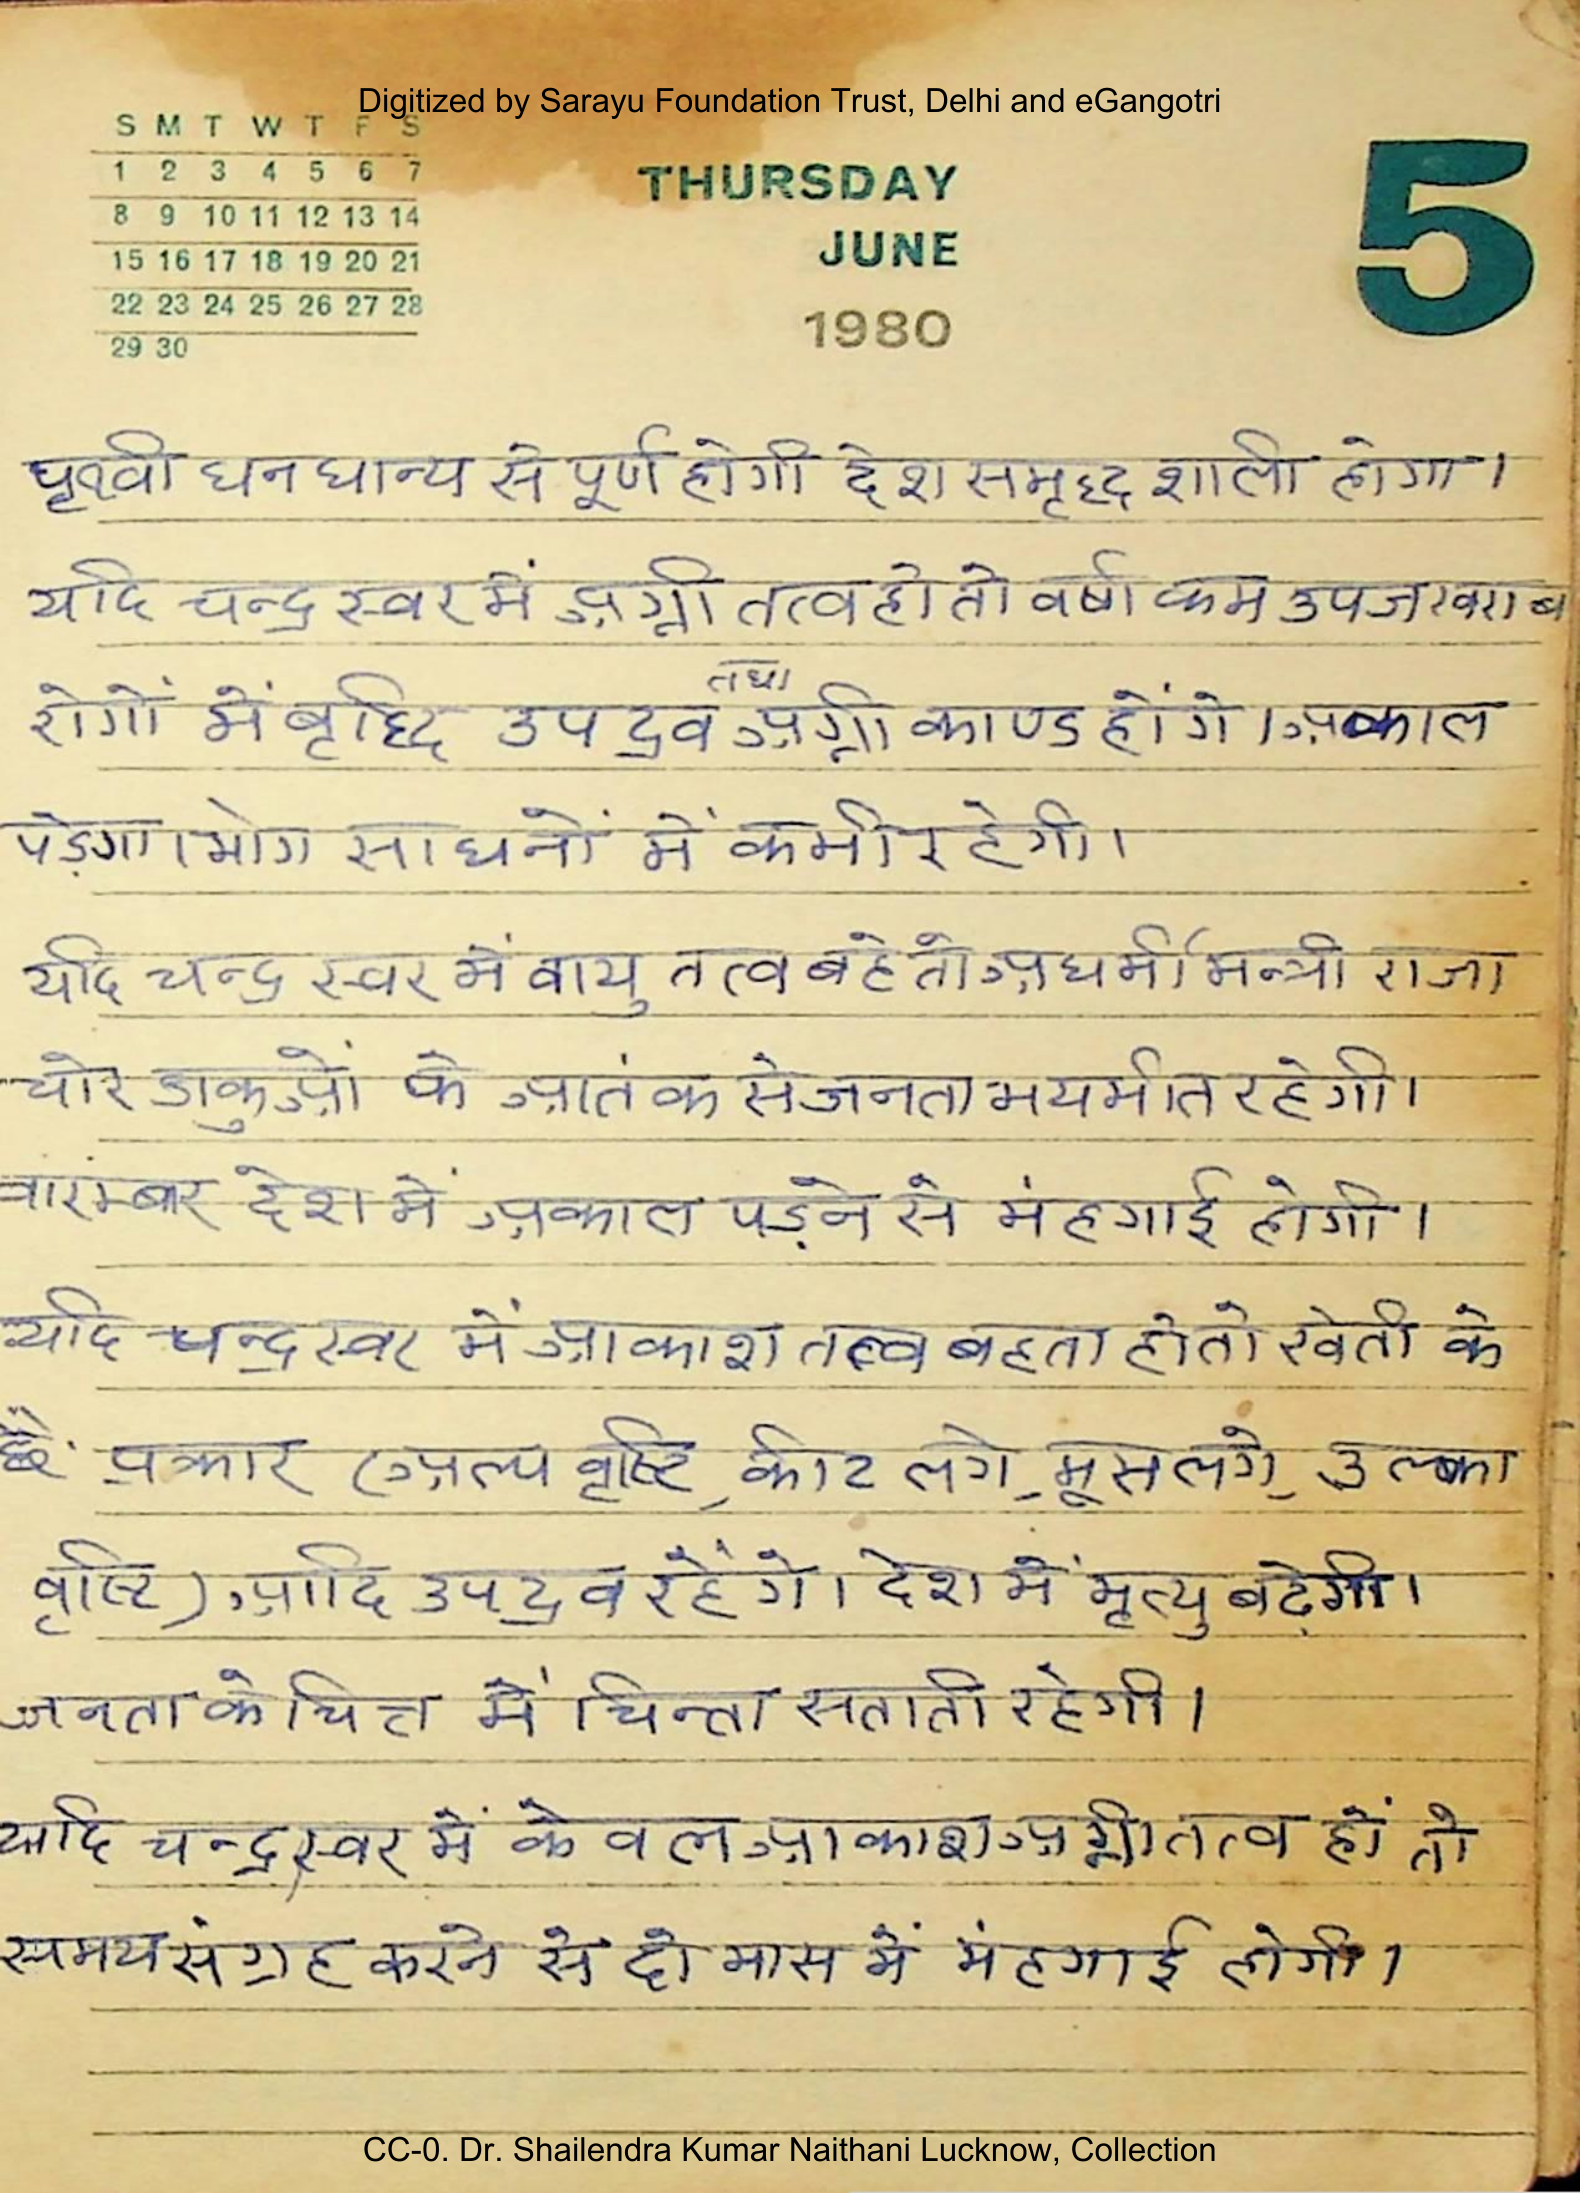 Digitized by Sarayu Foundation Trust, Delhi and eGangotri
S M T W T F S
1 2 3 4 5 6 7
8 9 10 11 12 13 14
15 16 17 18 19 20 21
22 23 24 25 26 27 28
29 30
THURSDAY
JUNE
1980
5
पृथ्वी धन धान्य से पूर्ण होगी देश समृद्ध शाली होगा।
यदि चन्द्र स्वर में अग्नी तत्व हो तो वर्षा कम उपज खराब
रोगों में बृद्धि उपद्रव तथा अग्नी काण्ड होंगे। अकाल
पड़ेगा। भोग साधनों में कमी रहेगी।
यदि चन्द्र स्वर में वायु तत्व बहे तो अधर्मी मन्त्री राजा
चोर डाकुओं के आतंक से जनता भयभीत रहेगी।
वारंम्बार देश में अकाल पड़ने से मंहगाई होगी।
यदि चन्द्र स्वर में आकाश तत्व बहता हो तो खेती के
प्रकार (अल्प वृष्टि, कीट लगे, मूस लगे, उल्का
वृष्टि) आदि उपद्रव रहेंगे। देश में मृत्यु बढ़ेगी।
जनता के चित्त में चिन्ता सताती रहेगी।
यदि चन्द्र स्वर में केवल आकाश अग्नी तत्व हों तो
समय संग्रह करने से दो मास में मंहगाई होगी।
CC-0. Dr. Shailendra Kumar Naithani Lucknow, Collection